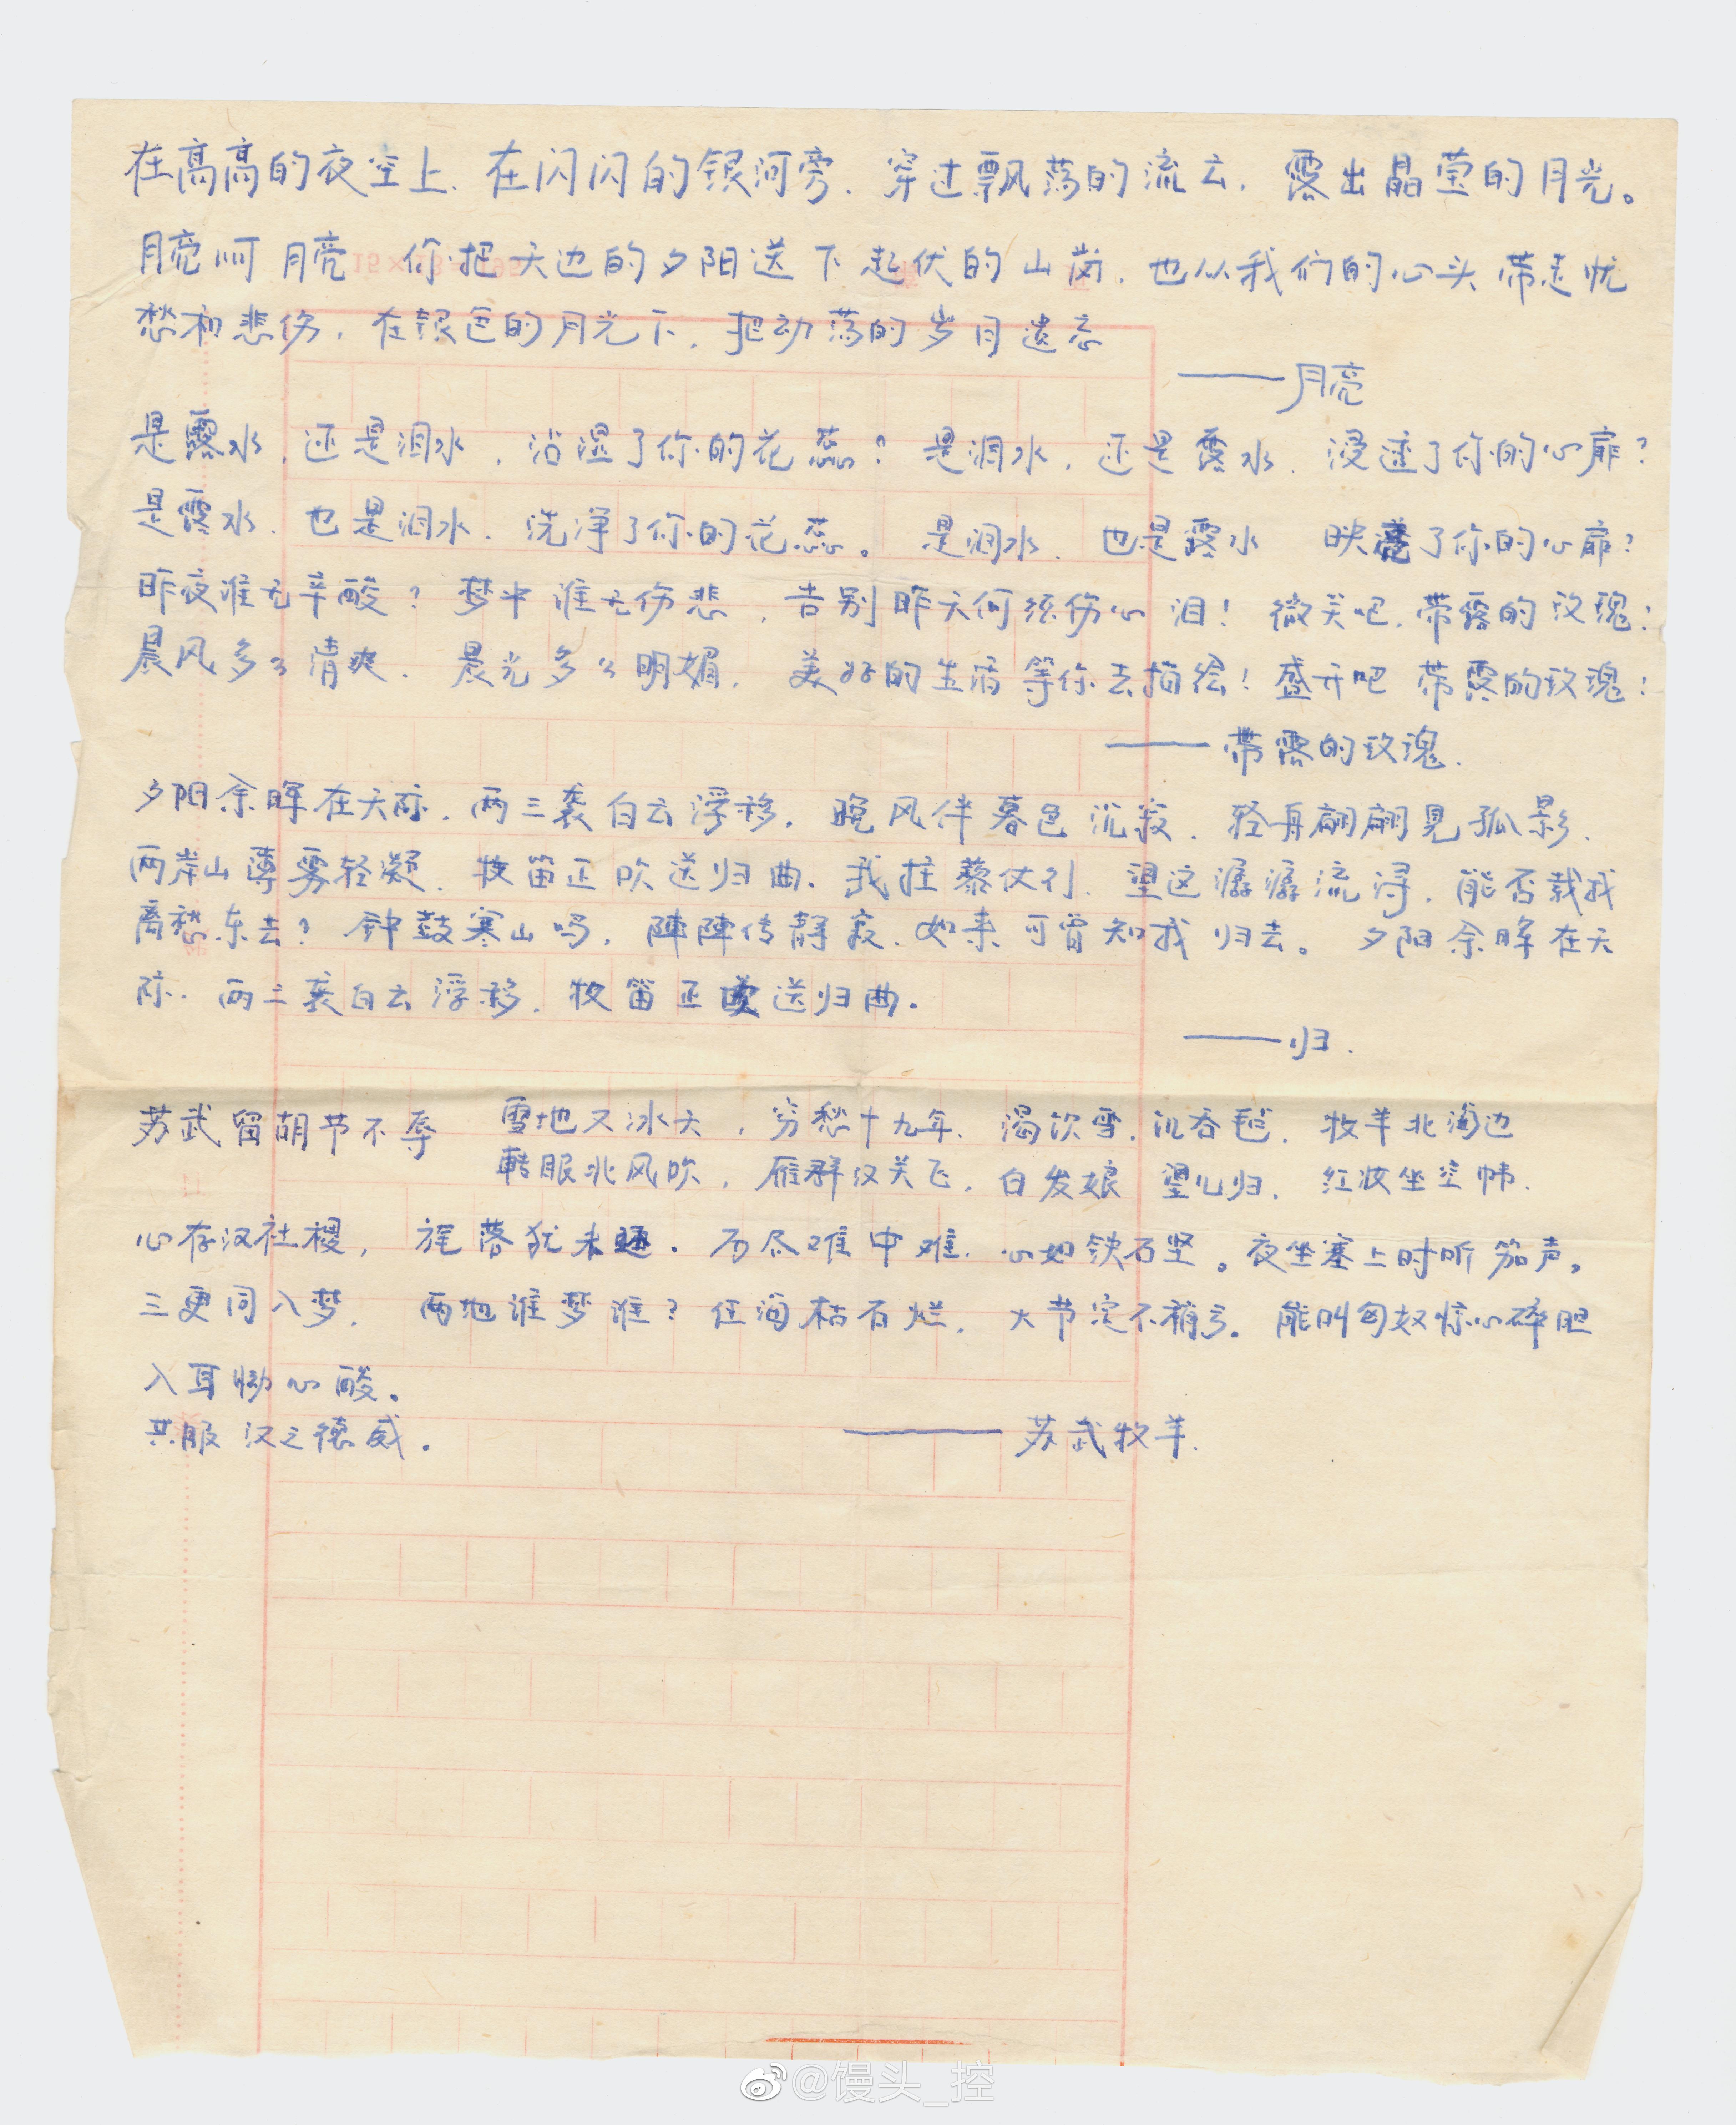 在高高的夜空上.在闪闪的银河旁.穿过飘荡的流云.露出晶莹的月光。
月亮呵月亮 你把天边的夕阳送下起伏的山岗.也从我们的心头带走忧
愁和悲伤.在银色的月光下.把动荡的岁月遗忘
——月亮
是露水.还是泪水.沾湿了你的花蕊?是泪水.还是露水.浸透了你的心扉?
是露水.也是泪水.洗净了你的花蕊。是泪水.也是露水 映亮了你的心扉?
昨夜谁无辛酸?梦中谁无伤悲.告别昨天何须伤心泪!微笑吧.带露的玫瑰!
晨风多么清爽.晨光多么明媚.美好的生活等你去描绘!盛开吧 带露的玫瑰!
——带露的玫瑰.
夕阳余晖在天际.两三袭白云浮移.晚风伴暮色沉寂.轻舟翩翩见孤影.
两岸山薄雾轻凝.牧笛正吹送归曲.我拄藜仗行.望这潺潺流浔.能否载我
离愁东去?钟鼓寒山鸣.陣陣传静寂.如来可曾知我归去。夕阳余晖在天
际.两三袭白云浮移.牧笛正吹送归曲.
——归.
苏武留胡节不辱 雪地又冰天,穷愁十九年.渴饮雪.饥吞毡.牧羊北海边
服北风吹,雁群汉关飞.白发娘 望儿归.红妆坐空帏.
心存汉社稷,旄落犹未还.历尽难中难.心如铁石坚。夜坐塞上时听笳声。
三更同入梦.两地谁梦谁?任海枯石烂.大节定不稍亏。能叫匈奴惊心碎胆
入耳恸心酸。
共服汉之德威.
——苏武牧羊.
@馒头_控